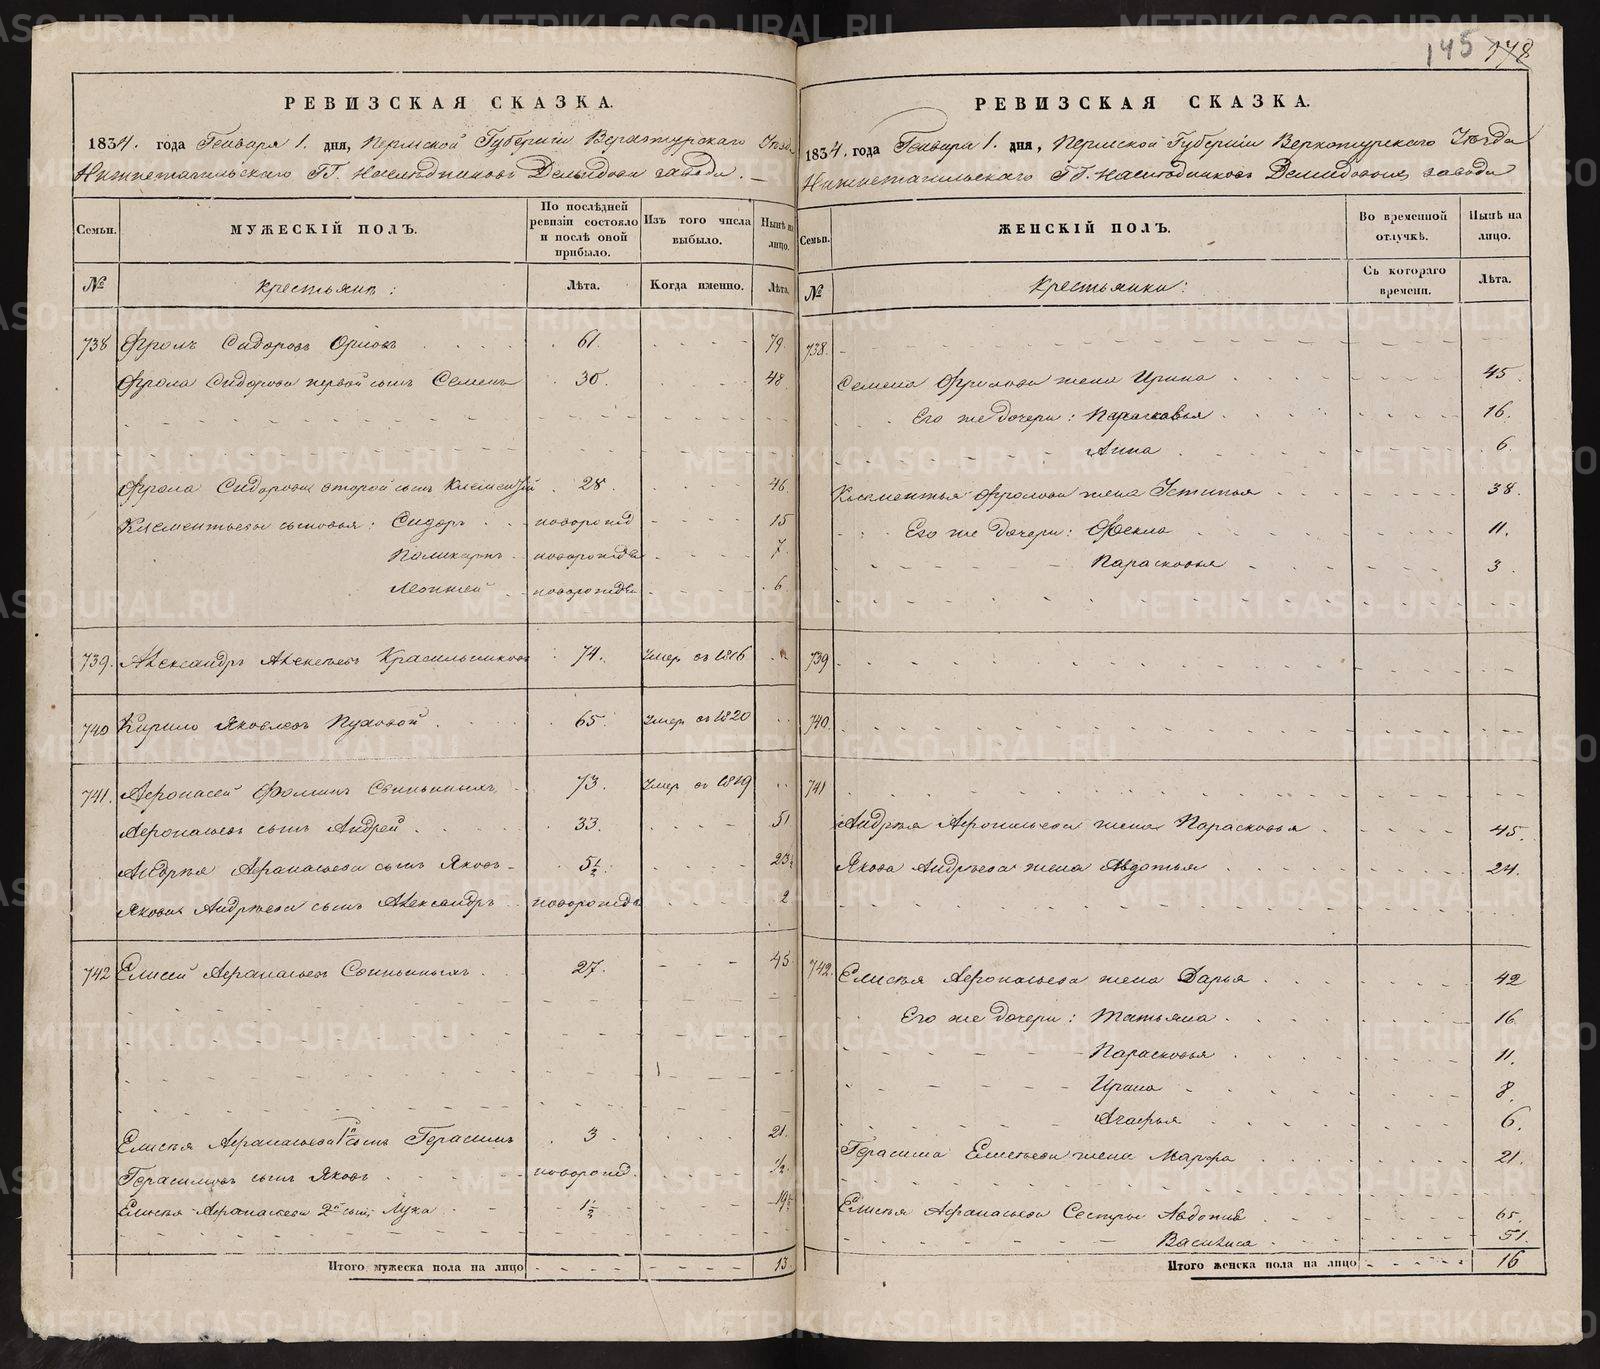 145 178
РЕВИЗСКАЯ СКАЗКА.
1834. года Генваря 1. дня, Пермской Губерніи Верхотурскаго Уѣзда
Нижнетагильскаго ГГ. Наслѣдниковъ Демидовы завода.
Семьи.
МУЖЕСКІЙ ПОЛЪ.
По послѣдней ревизіи состояло и послѣ оной прибыло.
Изъ того числа выбыло.
Нынѣ на лицо.
№
Крестьянъ:
Лѣта.
Когда именно.
Лѣта.
738 Фролъ Сидоровъ Орловъ 61 79.
Фрола Сидорова первой сынъ Семенъ 30. 48
Фрола Сидорова второй сынъ Клементій 28. 46.
Клементьевы сыновья: Сидоръ новорожд 15
Поликарпъ новорожде 7.
новорожде 6
739. Александръ Алексѣевъ Красильниковъ 74. Умер въ 1816
740 Кирило Яковлевъ Пуховой 65. Умер въ 1820
741. Афонасей Фоминъ 73. Умер въ 1819
Афонасьевъ сынъ Андрей 33. 51
Андрѣя Афанасьева сынъ Яковъ 5½ 23½
Якова Андрѣева сынъ Александръ новорожде 2
742 Елисей Афанасьевъ 27. 45
Елисѣя Афанасьева 1й сынъ Герасимъ 3 21.
Герасимовъ сынъ Яковъ новорожд. ½.
Елисѣя Афанасьева 2й сынъ Лука 1½ 19½
Итого мужеска пола на лицо 13.
РЕВИЗСКАЯ СКАЗКА.
1834. года Генваря 1. дня, Пермской Губерніи Верхотурскаго Уѣзда
Нижнетагильскаго ГГ. Наслѣдниковъ Демидовыхъ завода
Семьи.
ЖЕНСКІЙ ПОЛЪ.
Во временной отлучкѣ.
Нынѣ на лицо.
№
Крестьянки:
Съ котораго времени.
Лѣта.
738.
Семена Фролова жена Ирина 45.
Его же дочери: Парасковья 16.
Анна 6
Клементья Фролова жена Устинья 38.
Его же дочери: Фекла 11.
Парасковья 3.
739
740.
741
Андрѣя Афонасьева жена Парасковья 45.
Якова Андрѣева жена Авдотья 24.
742. Елисѣя Афонасьева жена Дарья 42
Его же дочери: Татьяна 16
Парасковья 11.
Ирина 8.
Агафья 6.
Герасима Елисѣева жена Марфа 21.
Елисѣя Афанасьева Сестры Авдотья 65.
Василиса 51.
Итого женска пола на лицо 16
METRIKI.GASO-URAL.RU